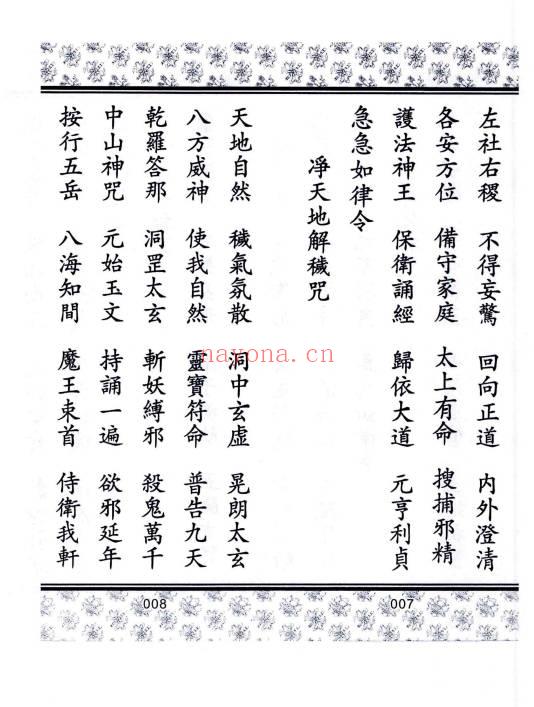 左社右稷 不得妄驚 回向正道 內外澄清
各安方位 備守家庭 太上有命 搜捕邪精
護法神王 保衛誦經 歸依大道 元亨利貞
急急如律令
淨天地解穢咒
天地自然 穢氣氛散 洞中玄虛 晃朗太玄
八方威神 使我自然 靈寶符命 普告九天
乾羅答那 洞罡太玄 斬妖縛邪 殺鬼萬千
中山神咒 元始玉文 持誦一遍 欲邪延年
按行五岳 八海知間 魔王束首 侍衛我軒
007
008
nayona.cn